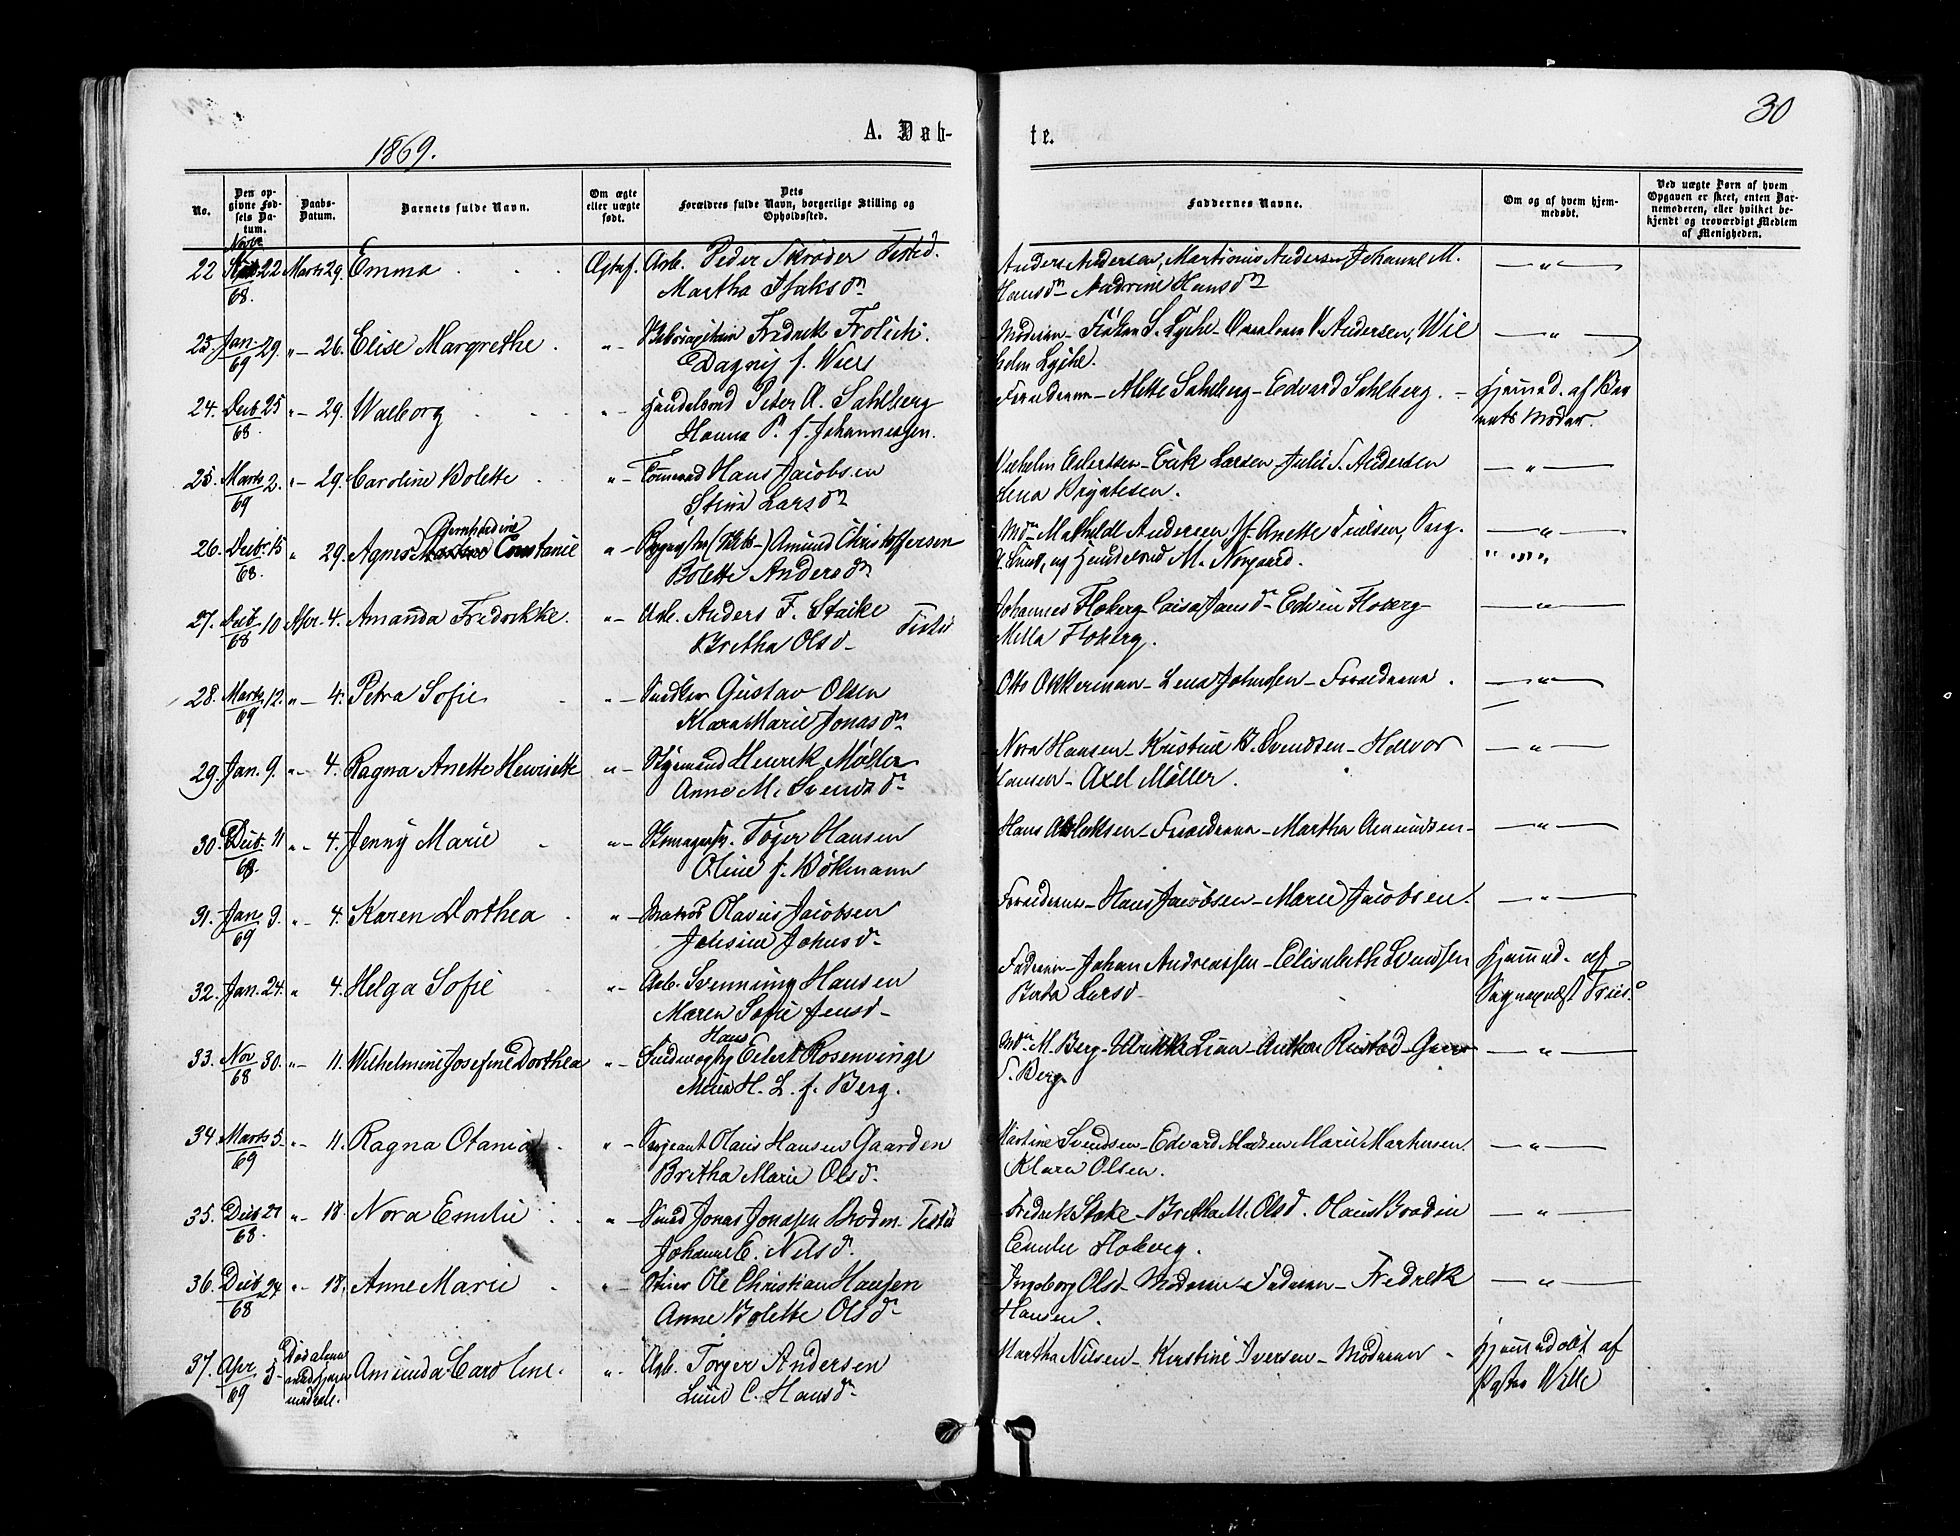 30
1869.
A. Døb-
te.
No.
Den op-
givne Fød-
sels Da-
tum.
Daabs-
Datum.
Barnets fulde Navn.
Om ægte
eller uægte
født.
Dets
Forældres fulde Navn, borgerlige Stilling og
Opholdssted.
Faddernes Navne.
Om og af hvem hjem-
medøbt.
Ved uægte Børn af hvem
Opgaven er skeet, enten Bar-
nemoderen, eller hvilket be-
kjendt og troværdigt Medlem
af Menigheden.
22 Novbr 22 68. Marts 29. Emma Ægtef. Arb. Peder Skrøder Tisted.
Martha Isaksdn
Anders Andersen, Martinius Andersen, Johanne M.
Hansdn Andrine Hansdn
23. Jan. 29. 69 " 26. Elise Margrethe. " Fredrek Frolich.
Dagny f. Wiel
Moderen - S. Lyche V. Andersen, Wil
helm Lyche.
24. Decb. 25 68. " 29. Walborg " Handelsmd Peter A. Sahlberg
Hanna P. f. Johannessen.
Forældrene - Alette Sahlberg - Edvard Sahlberg. - Hjemmed. af Bar
nets Moder.
25. Marts 2. 69 " 29. Caroline Bolette " Tømmermd Hans Jacobsen
Stina Larsdn
Eilertsen - Erik Larsen - Julie S. Andersen
Lena Bryntesen.
26. Decb. 15 68. " 29. Agnes Bernhardine Constance " Amund Christoffersen
Bolette Andersdn
Mdm Mathilde Andersen Jf. Anette Nielsen, Serg.
Lund, og Handelsmd M. Norgaard.
27. Decb. 10 68 Apr. 4. Amanda Fredrikke. " Arb. Anders F. Stake Tisted
Bretha Olsd.
Johannes Floberg - Caisa Jansd - Edvin Floberg
Milla Floberg.
28. Marts 12. 69 " 4. Petra Sofie " Snedker Gustav Olsen
Klara Marie Jonasdn
Otto Okkerman - Lena Johnsen - Forældrene.
29. Jan. 9. " 4. Ragna Anette Henriette " Styrmand Henrik Møller
Anne M. Svendsd.
Nora Hansen - Kristine B. Svendsen - Halvor
Hansen - Axel Møller.
30. Decb. 11 68 " 4. Jenny Marie " Skomagersv. Toger Hansen
Oline f. Bökmann
Hans - Forældrene - Martha Amundsen -
31. Jan. 9. 69 " 4. Karen Dorthea " Matros Olavus Jacobsen
Johnsd.
Forældrene - Hans Jacobsen - Maren Jacobsen.
32. Jan. 24. " 4. Helga Sofie " Arb. Svenning Hansen
Maren Sofie Jensd.
Faderen - Johan Andreassen - Elisabeth Svendsen
Berta Larsd.
Hjemmed. af
Sogneprest Friis.
33. Nov 30. 68 " 11. Wilhelmine Josefine Dorthea " Hans Eilert Rosenvinge
Maria H. L. f. Berg.
Mdm M. Berg - Ulrikke Linn - Anthon Rustad -
S. Berg.
34. Marts 5. 69 " 11. Ragna Otania " Sergeant Olaus Hansen Gaarden
Bretha Marie Olsd.
Martine Svendsen - Edvard Madsen Marie Martinsen
Klara Olsen.
35. Decb 21 68. " 18. Nora Emilie " Smed Jonas Jonassen Broden Tisted
Johanne E. Nilsd.
Fredrik Stake - Bretha M. Olsd. Olaus Brodin
Emilie Floberg.
36. Decb 24 68 " 18. Anne Marie " Ole Christian Hansen
Anne Bolette Olsd.
Ingeborg Olsd - Moderen - Faderen - Fredrek
Hansen.
37. Apr 5 69 Amunda Caroline. " Arb. Torger Andersen
C. Hansd.
Martha Nilsen - Kirstine Iversen - Moderen - Hjemmedøbt af
Pastor Wille